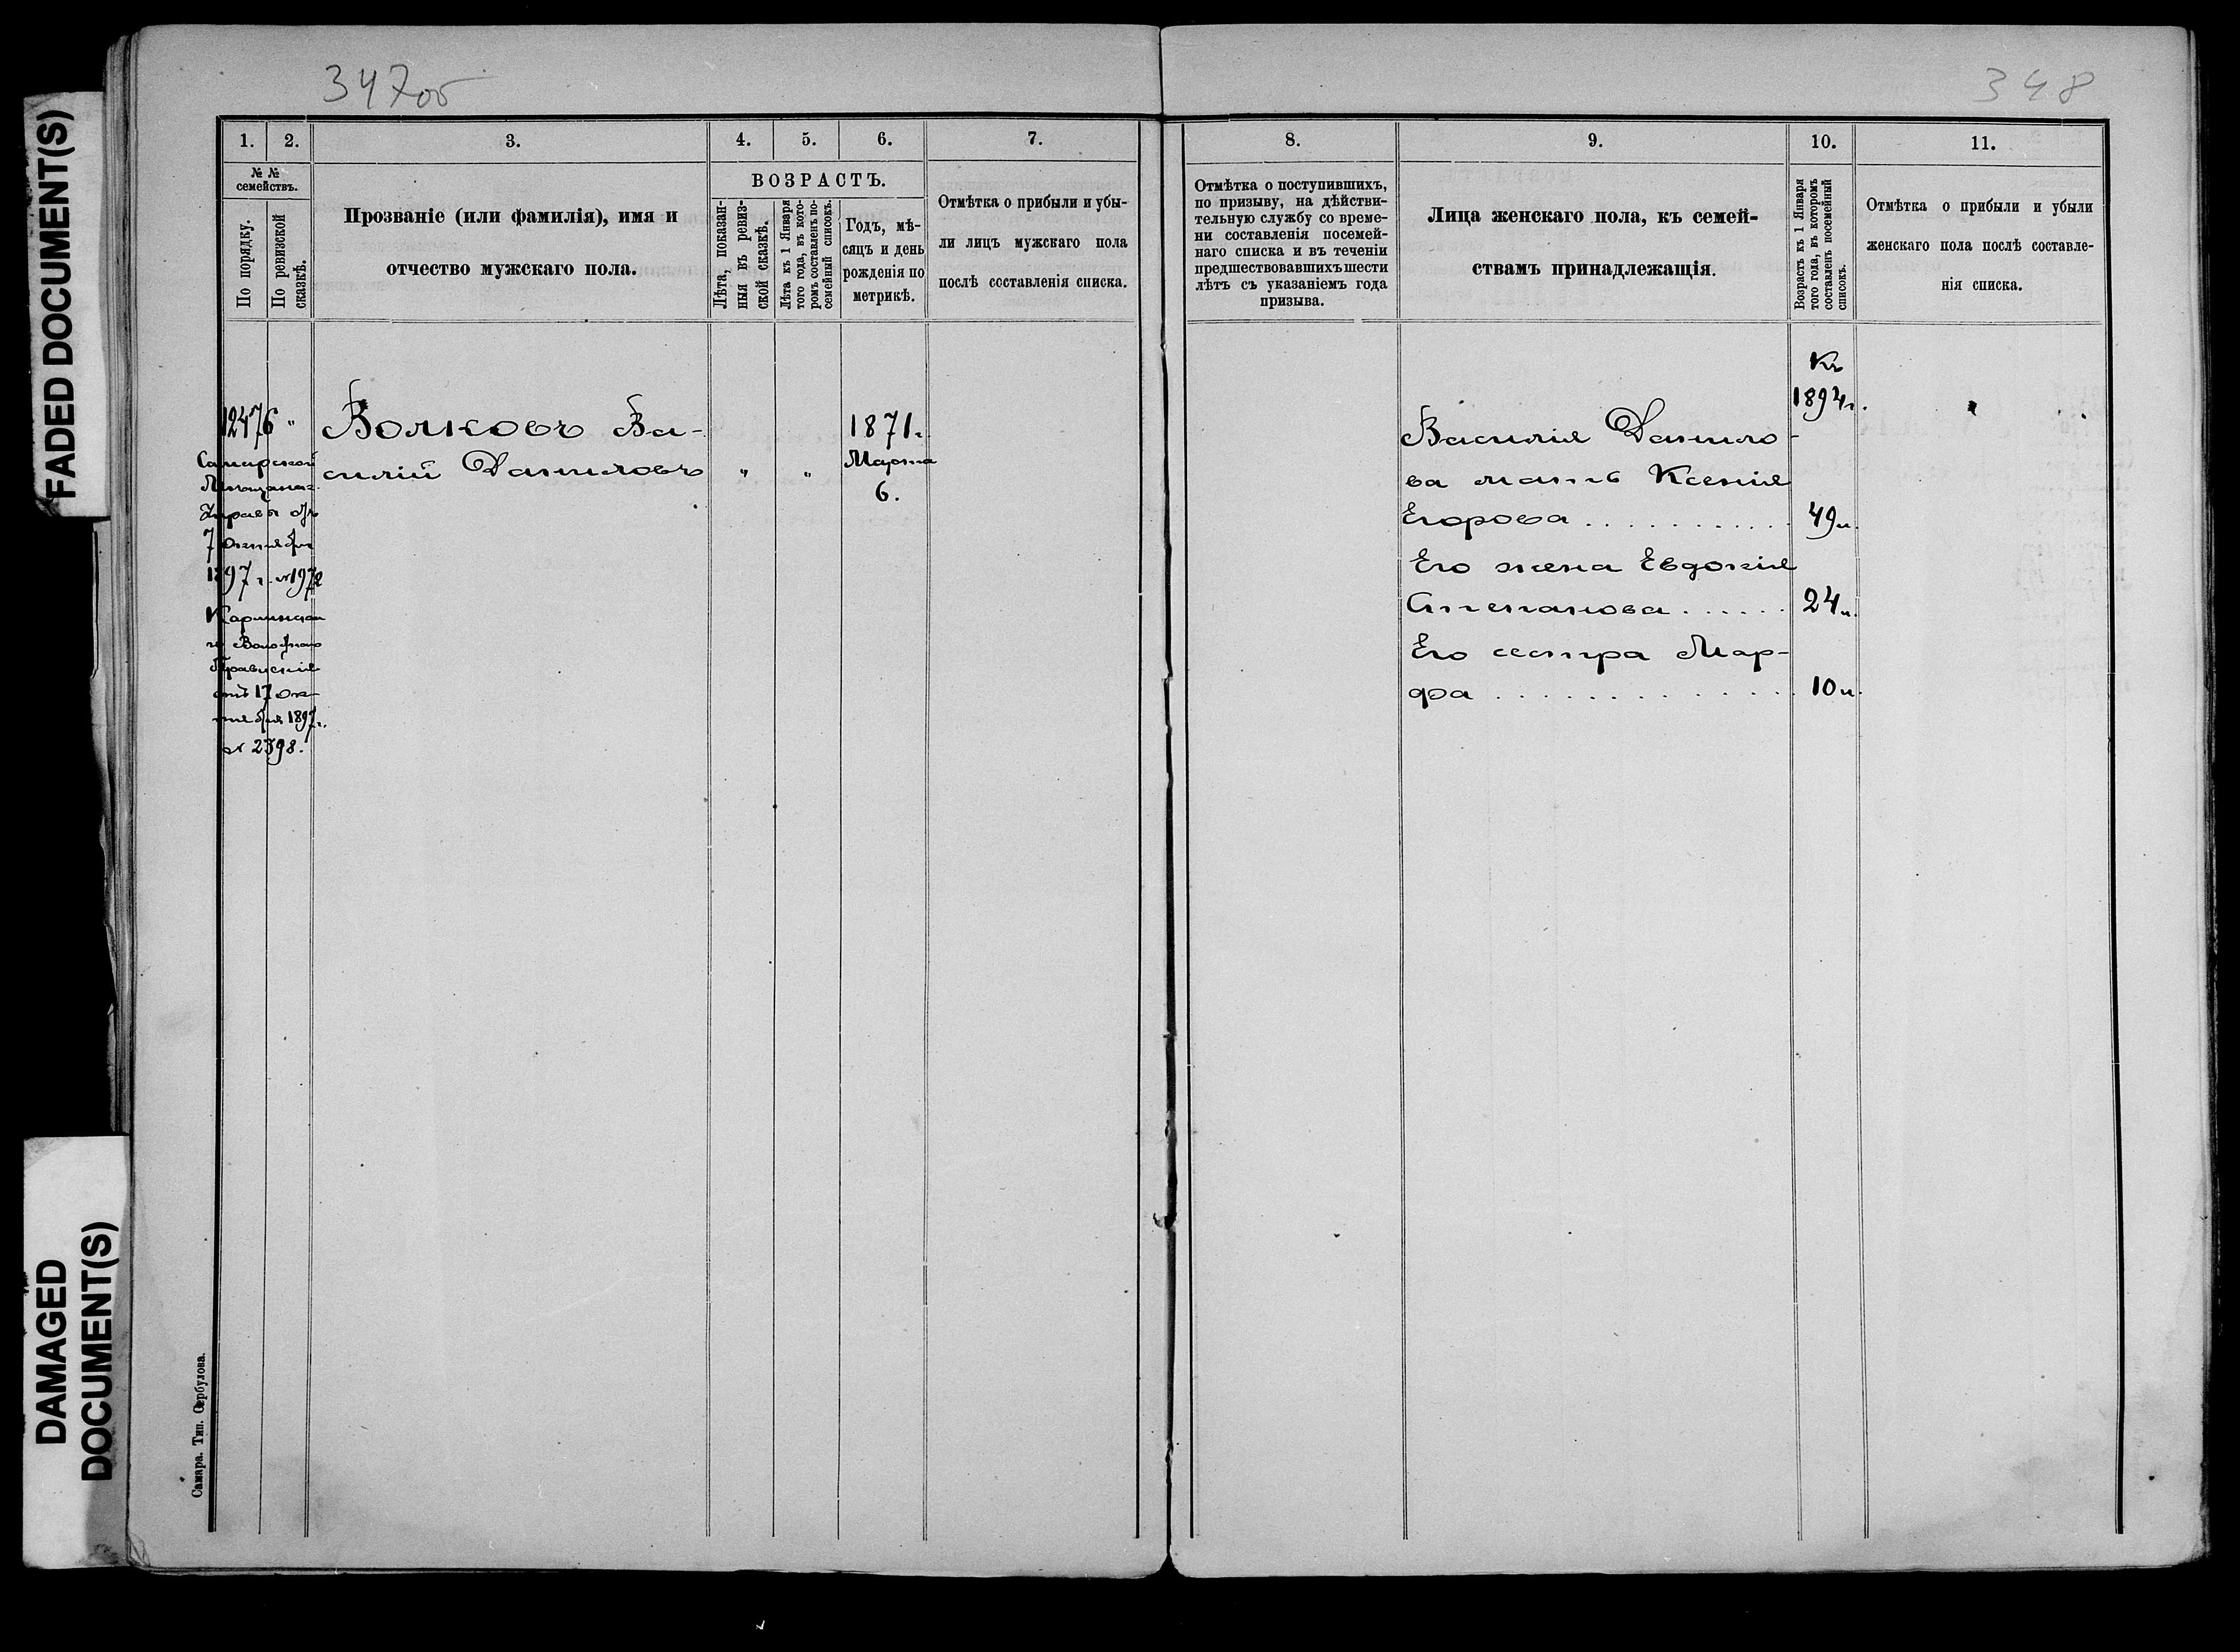 FADED DOCUMENT(S)
DAMAGED
DOCUMENT(S)
347об
1. 2. 3. 4. 5. 6. 7.
№ №
семействъ.
По порядку.
По ревизской
сказкѣ.
Прозваніе (или фамилія), имя и
отчество мужскаго пола.
ВОЗРАСТЪ.
Лѣта, показан-
ныя въ ревиз-
ской сказкѣ.
Лѣта къ 1 Января
того года, въ кото-
ромъ составленъ по-
семейный списокъ.
Годъ, мѣ-
сяцъ и день
рожденія по
метрикѣ.
Отмѣтка о прибыли и убы-
ли лицъ мужскаго пола
послѣ составленія списка.
12476 "
Самарской
Мѣщанск.
Управы
7 октября
1897 г. №1972
Волостнаго
Правленія
отъ 17 ок-
тября 1897г.
№ 2398.
Волковъ Ва-
силій Даниловъ " "
1871г.
Марта
6.
Самара. Тип. Сербулова.
348
8. 9. 10. 11.
Отмѣтка о поступившихъ,
по призыву, на дѣйстви-
тельную службу со време-
ни составленія посемей-
наго списка и въ теченіи
предшествовавшихъ шести
лѣтъ съ указаніемъ года
призыва.
Лица женскаго пола, къ семей-
ствамъ принадлежащія.
Возрастъ къ 1 Января
того года, въ которомъ
составленъ посемейный
списокъ.
Отмѣтка о прибыли и убыли
женскаго пола послѣ составле-
нія списка.
Къ
1894г.
Василія Данило-
ва мать Ксенія
Егорова . . . . . . . . . . . . 49л.
Его жена Евдокія
Степанова . . . . . . 24л.
Его сестра Мар-
фа . . . . . . . . . . . . . . 10л.